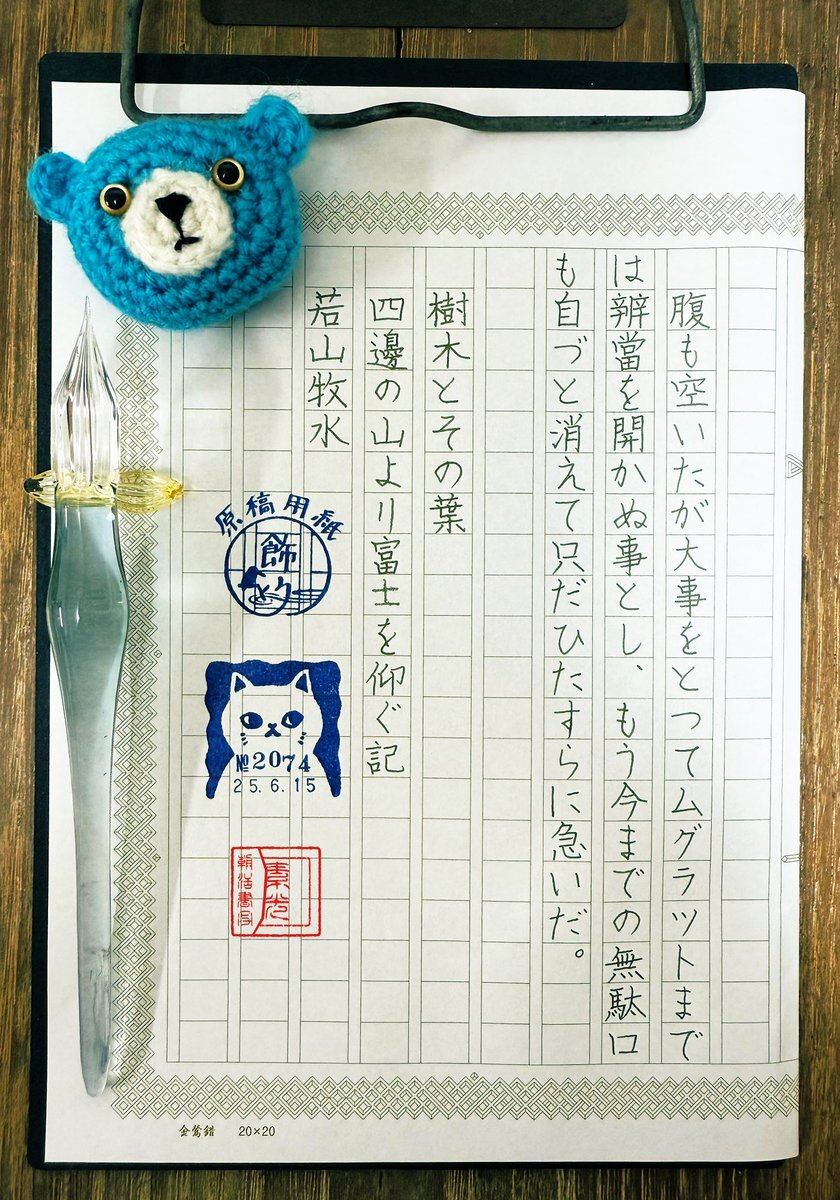 腹も空いたが大事をとつてムグラツトまで
は辨當を開かぬ事とし、もう今までの無駄口
も自づと消えて只だひたすらに急いだ。
樹木とその葉
四邊の山より富士を仰ぐ記
若山牧水
原稿用紙
飾
№2074
25.6.15
素光
朝活書写
金鶯錯 20×20